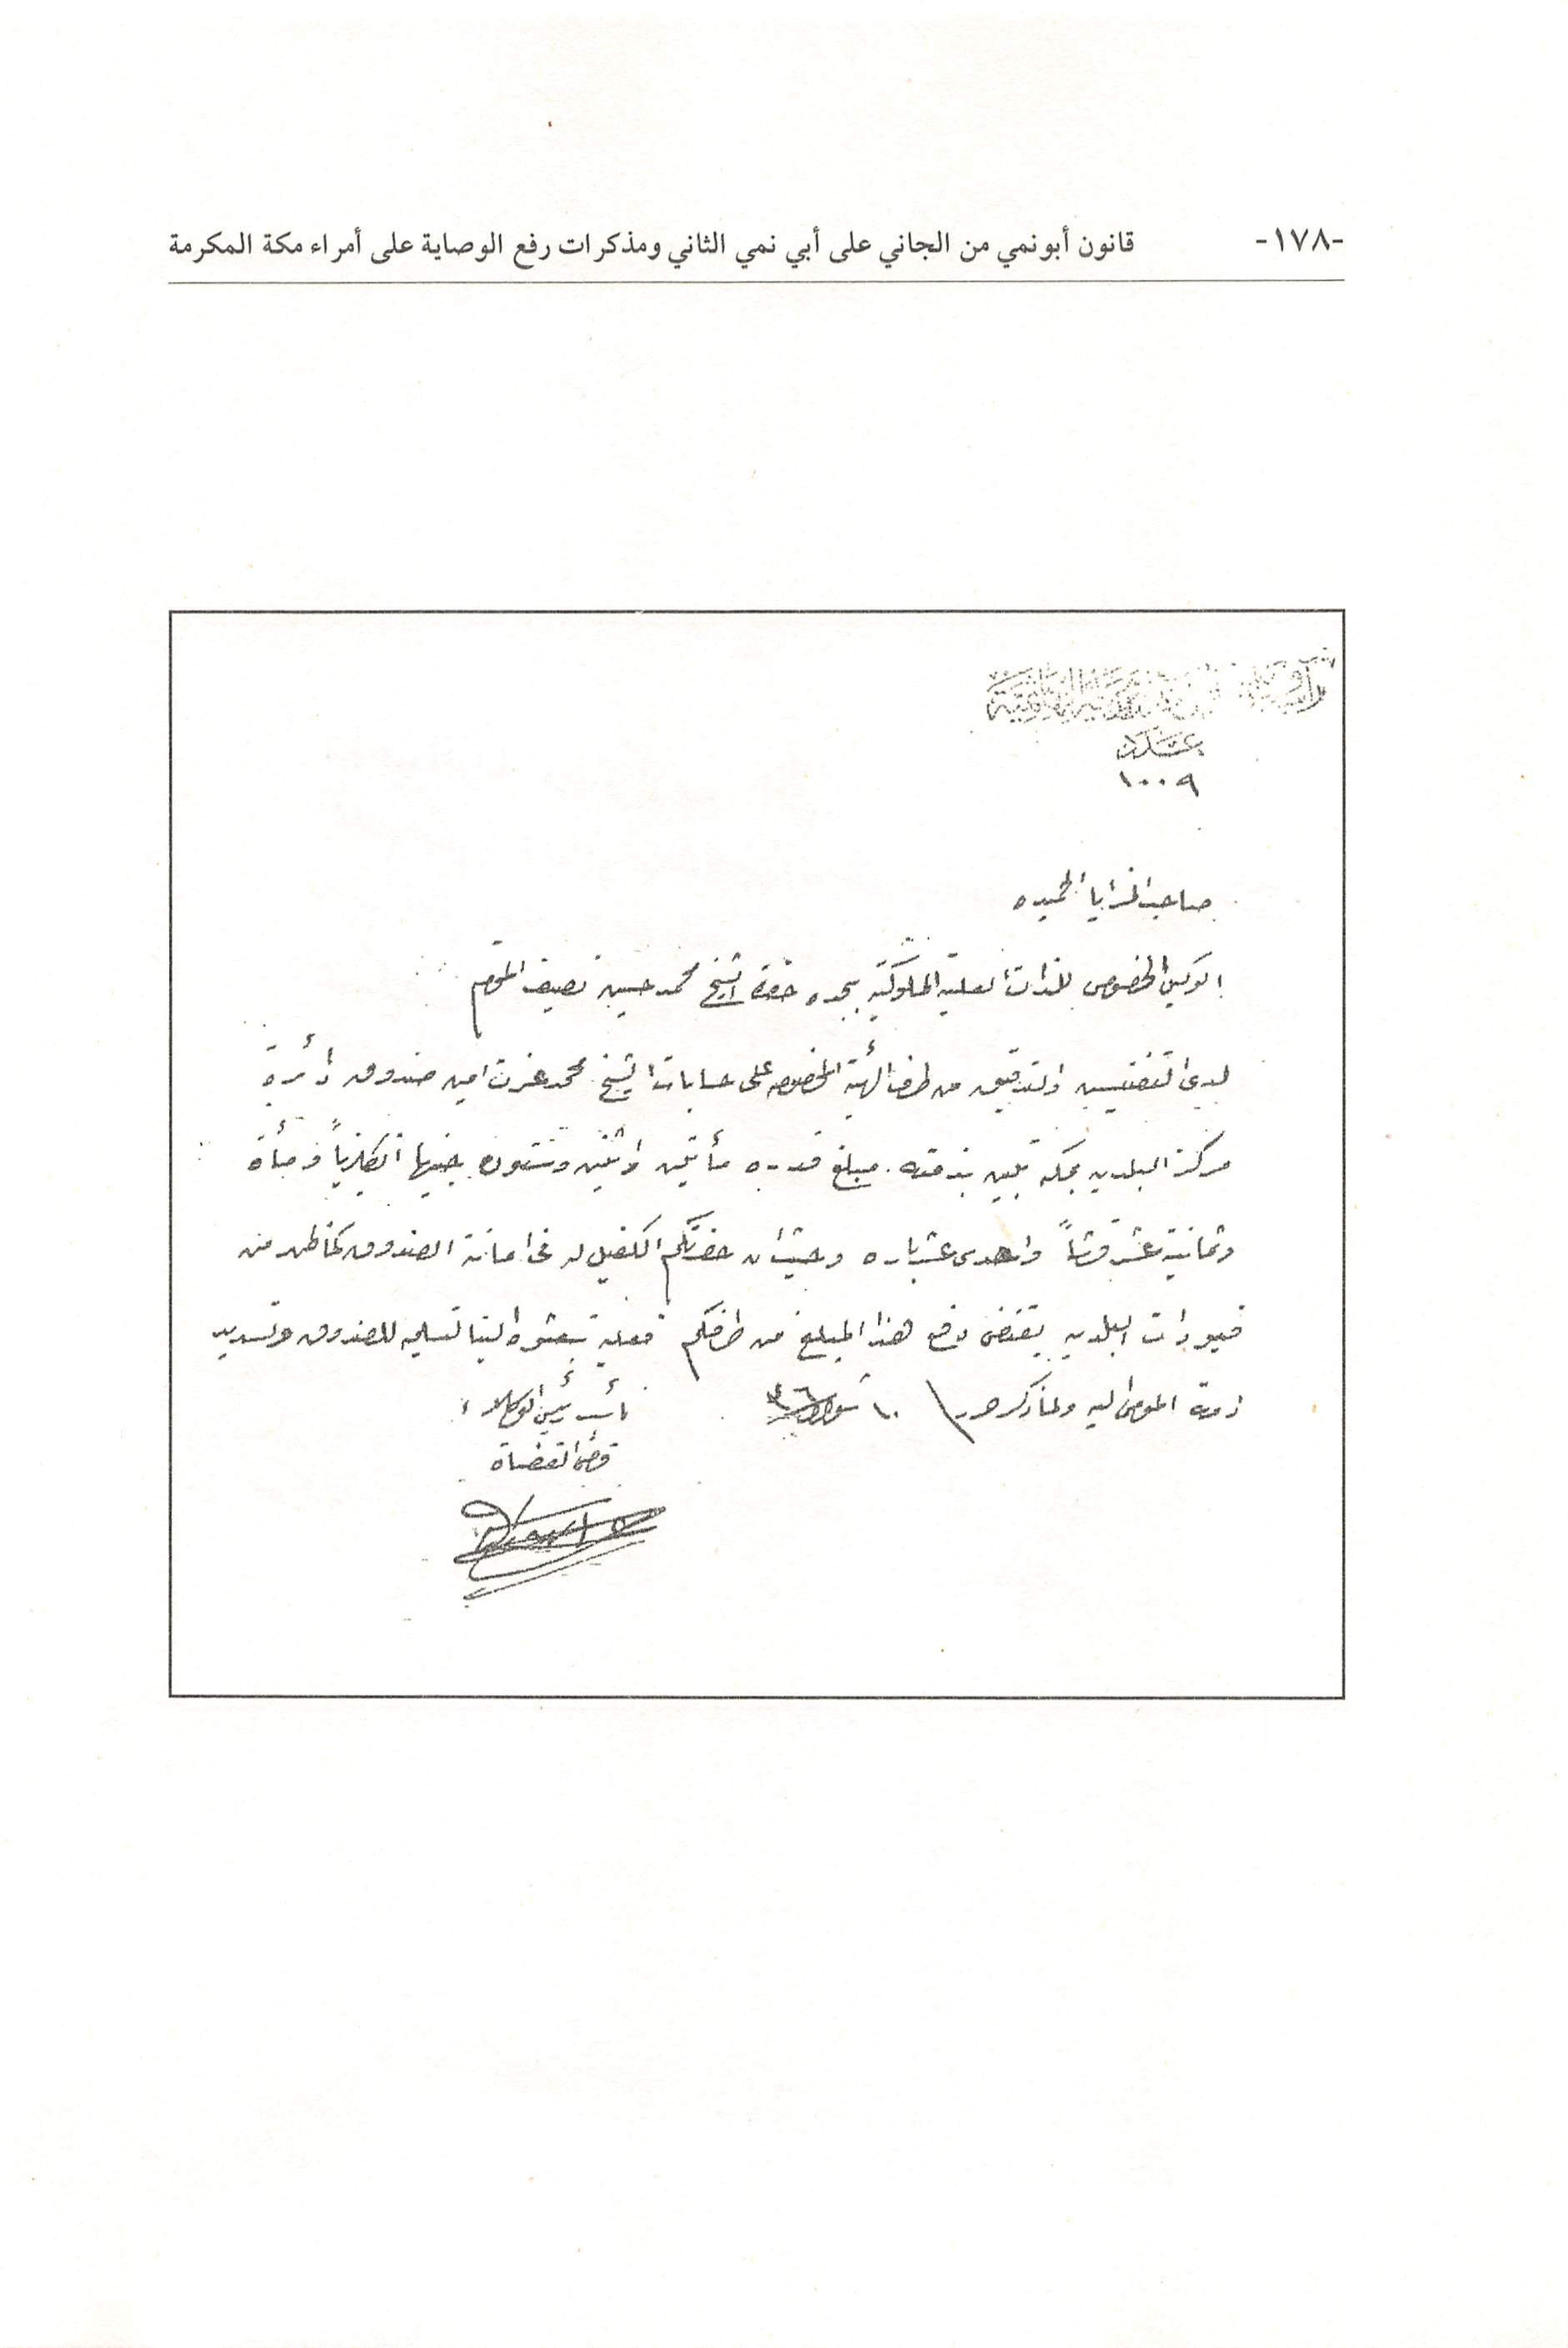 -١٧٨- قانون أبونمي من الجاني على أبي نمي الثاني ومذكرات رفع الوصاية على أمراء مكة المكرمة
عدد
١٠٠٩
صاحب المزايا الحميده
الوكيل المخصوص للذات العلية الملوكية بجده حضرة الشيخ محمد حسين نصيف المحترم
لدى التفتيش والتدقيق من طرف الهيئة المخصوصه على حسابات الشيخ محمد عزت امين صندوق دائرة
مركز البلديه بمكة تبين بذمته مبلغ قدره مأتين واثنين وستون جنيها انكليزياً ومأة
وثمانية عشر قرشاً واحدى عشر باره وحيث ان حضرتكم الكفيل له في امانة الصندوق كما ظهر من
قيودات البلديه يقتضى دفع هذا المبلغ من طرفكم فعليه تبعثوه الينا لتسليمه للصندوق وتسديد
ذمة المومى اليه ولما ذكر حرر ١٠
نائب رئيس الوكلاء
قاضى القضاة